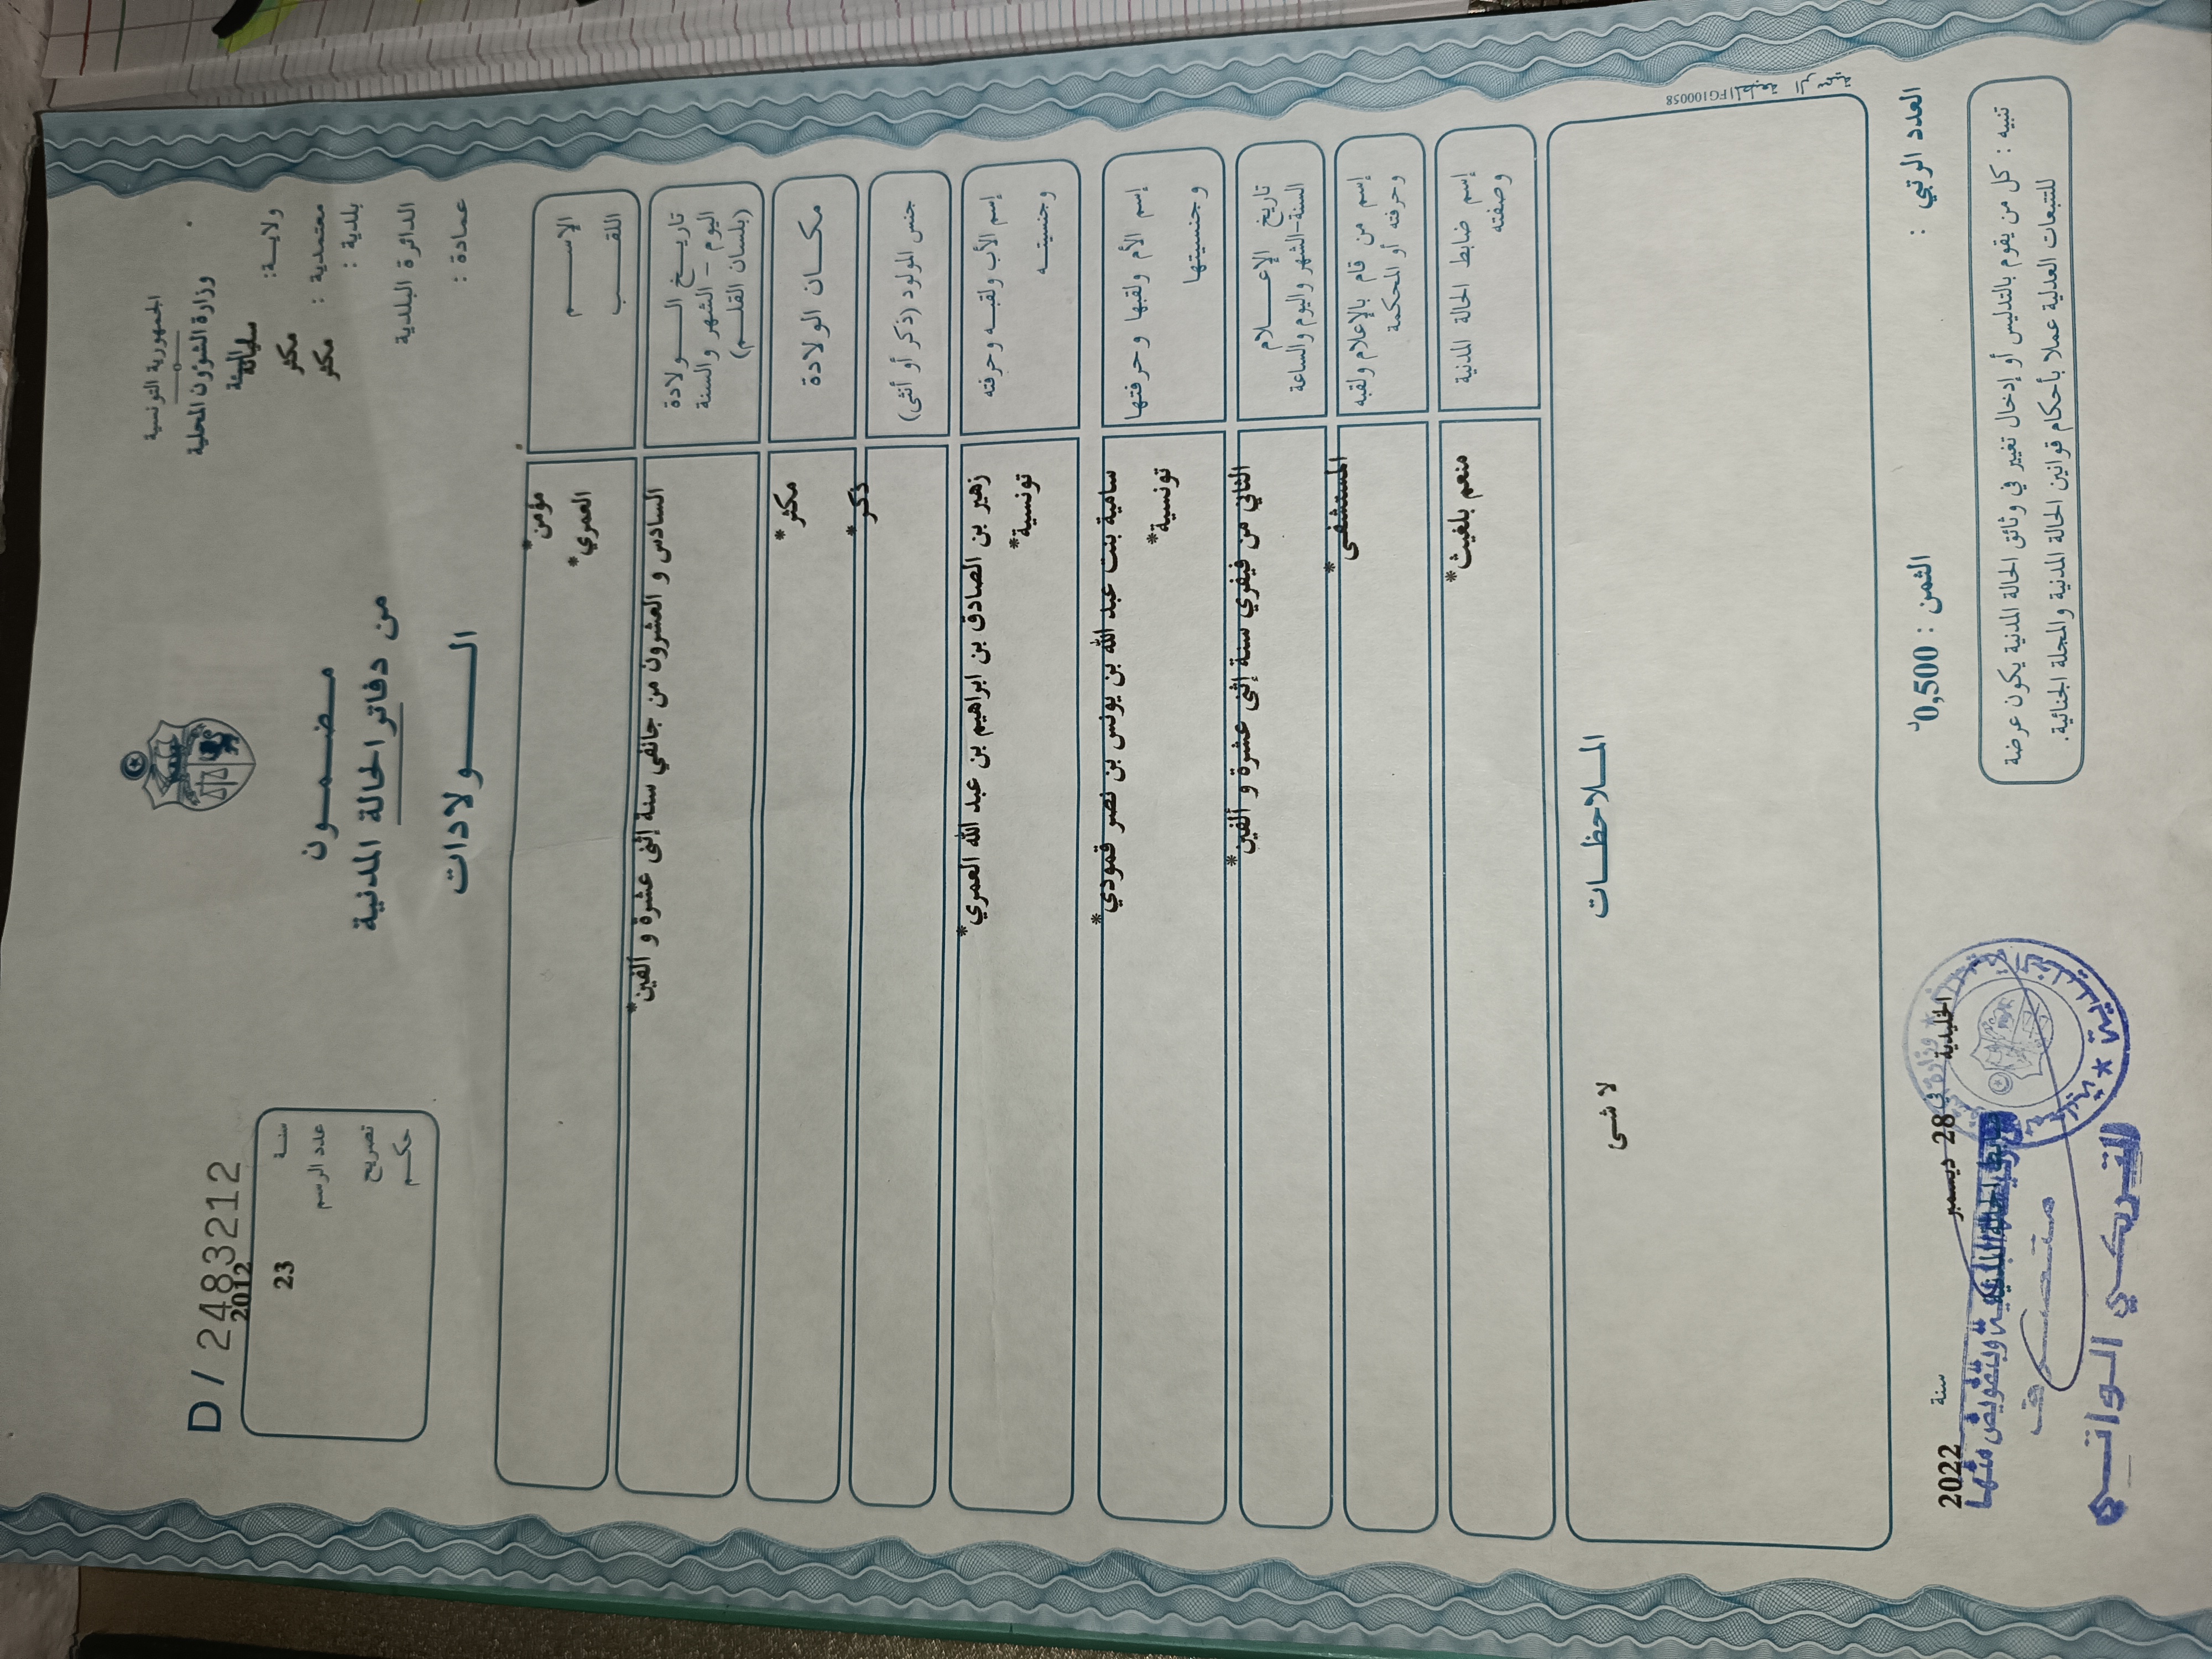 الجمهورية التونسية
وزارة الشؤون المحلية
ولاية: سليانة
معتمدية : مكثر
بلدية : مكثر
الدائرة البلدية
عمادة :
مضمون
من دفاتر الحالة المدنية
الولادات
D / 2483212
2012
سنة
23
عدد الرسم
تصريح
حكم
الإسم
مؤمن*
اللقب
العمري*
تاريخ الولادة
اليوم - الشهر والسنة
(بلسان القلم)
السادس و العشرون من جانفي سنة إثنى عشرة و ألفين*
مكان الولادة
مكثر*
جنس المولود (ذكر أو أنثى)
ذكر*
إسم الأب ولقبه وحرفته
زهير بن الصادق بن ابراهيم بن عبد الله العمري*
وجنسيته
تونسية*
إسم الأم ولقبها وحرفتها
سامية بنت عبد الله بن يونس بن نصر قمودي*
وجنسيتها
تونسية*
تاريخ الإعلام
السنة-الشهر واليوم والساعة
الثاني من فيفري سنة إثنى عشرة و ألفين*
إسم من قام بالإعلام ولقبه
وحرفته أو المحكمة
المستشفى*
إسم ضابط الحالة المدنية
وصفته
منعم بلغيث*
الملاحظات
لا شئ
FG100058
العدد الرتبي :
الثمن : 0,500د
الخليدية في 28 ديسمبر سنة 2022
ضابط الحالة المدنية وبتفويض منها
التريكي الواتي
تنبيه : كل من يقوم بالتدليس أو إدخال تغيير في وثائق الحالة المدنية يكون عرضة
للتتبعات العدلية عملا بأحكام قوانين الحالة المدنية والمجلة الجنائية.